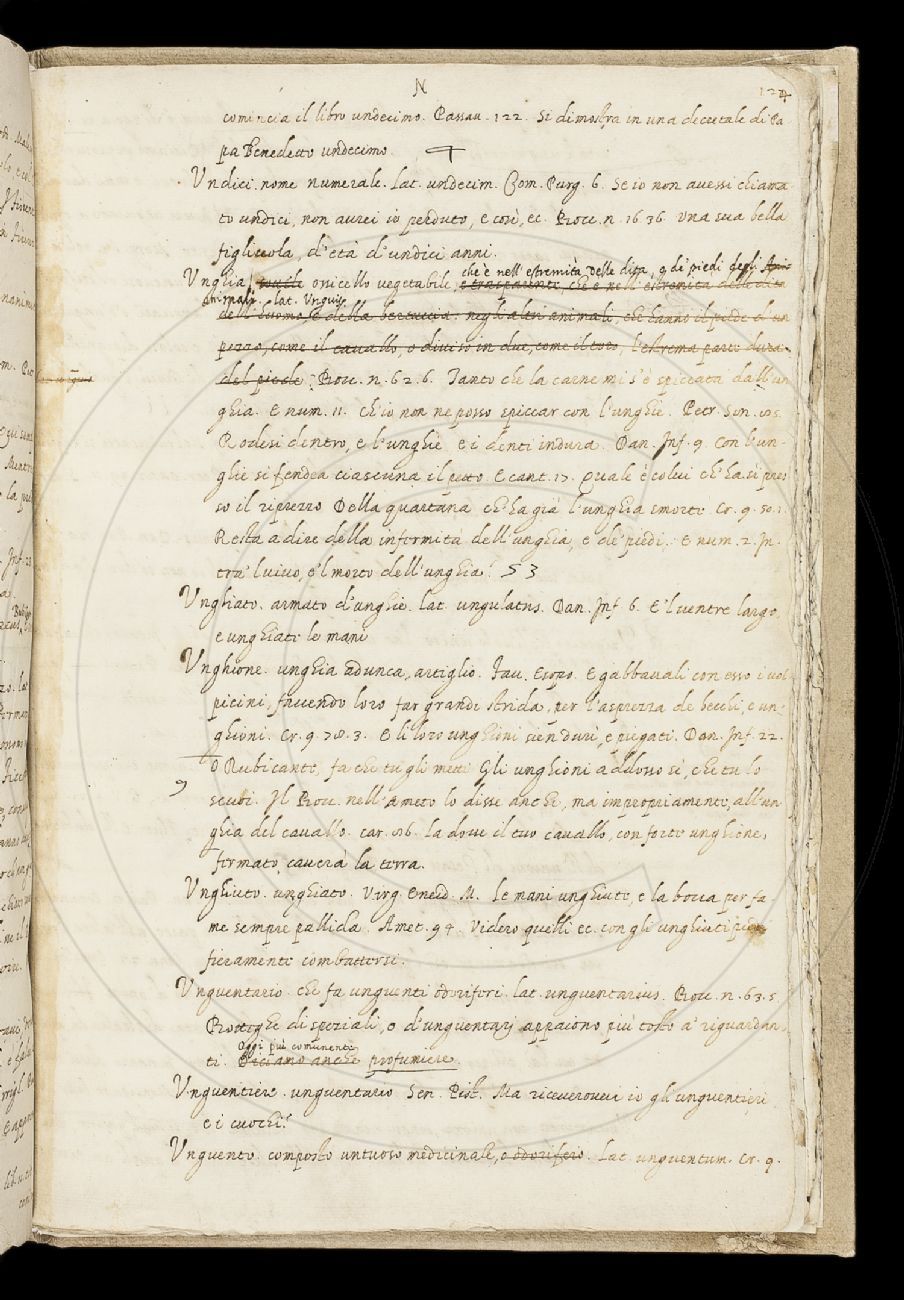 N
124
comincia il libro undecimo. Passau. 122. Si dimostra in una decretale di Pa-
pa Benedetto undecimo.
Undici. nome numerale. Lat. undecim. Com. Purg. 6. Se io non avessi chiama-
to undici, non aurei io perduto, e così, ec. Bocc. n. 16 36. Una sua bella
figliuola, d'età d'undici anni.
che è nell'estremità delle dita, e de piedi degli
Unghia. sottile ossicello vegetabile, e trasparente, che è nell'estremità delle dita
animali. lat. Unguis
dell'huomo, e della bertuccia: negli altri animali, che hanno il piede d'un
pezzo, come il cavallo, o diviso in due, come il toro, l'estrema parte dura
del piede. Bocc. n. 62. 6. Tanto che la carne mi s'è spiccata dall'un-
ghia. E num. 11. Ch'io non ne posso spiccar con l'unghie. Petr. Son.
Rodesi dentro, e l'unghie e i denti indura. Dan. Inf. 9. Con l'un-
ghie si fendea ciascuna il petto E cant. 17. Quale è colui ch'ha sì pres-
so il riprezzo Della quartana ch'ha già l'unghia smorte Cr. 9. 50. 1.
Resta a dire della infermità dell'unghia, e de' piedi. E num. 2. In-
tra'l vivo, e'l morto dell'unghia. § 3
Unghiato. armato d'unghie. lat. ungulatus. Dan. Inf. 6. E'l ventre largo,
e unghiate le mani
Unghione. unghia adunca, artiglio. Fav. Esopo. E gabbavali con esso i vol-
picini, facendo loro far grandi strida, per l'asprezza de becchi, e un-
ghioni. Cr. 9. 78. 3. E li loro unghioni sien duri, e piegati. Dan. Inf. 22.
O Rubicante, fa che tu gli metti Gli unghioni addosso sì, che tu lo
scuoi. Il Bocc. nell'Ameto lo disse anche, ma impropriamente, all'un-
ghia del cavallo. car. la dove il tuo cavallo, con forte unghione,
fermato, caverà la terra.
Unghiuto. unghiato. Virg. Eneid. M. Le mani unghiute, e la bocca per fa-
me sempre pallida. Amet. 94. Videro quelli ec. con gli unghiuti piedi
fieramente combattersi.
Unguentario. che fa unguenti odoriferi. lat. unguentarius. Bocc. n. 63. 5
Botteghe di speziali, o d'unguentarj appaiono più tosto a' riguardan-
Oggi più comunente
ti. Diciamo anche profumiere.
Unguentiere. unguentario Sen. Pist. Ma riceverovvi io gli unguentieri
e i cuochi?
Unguento. composto untuoso medicinale, o odorifero. Lat. unguentum. Cr. 9.